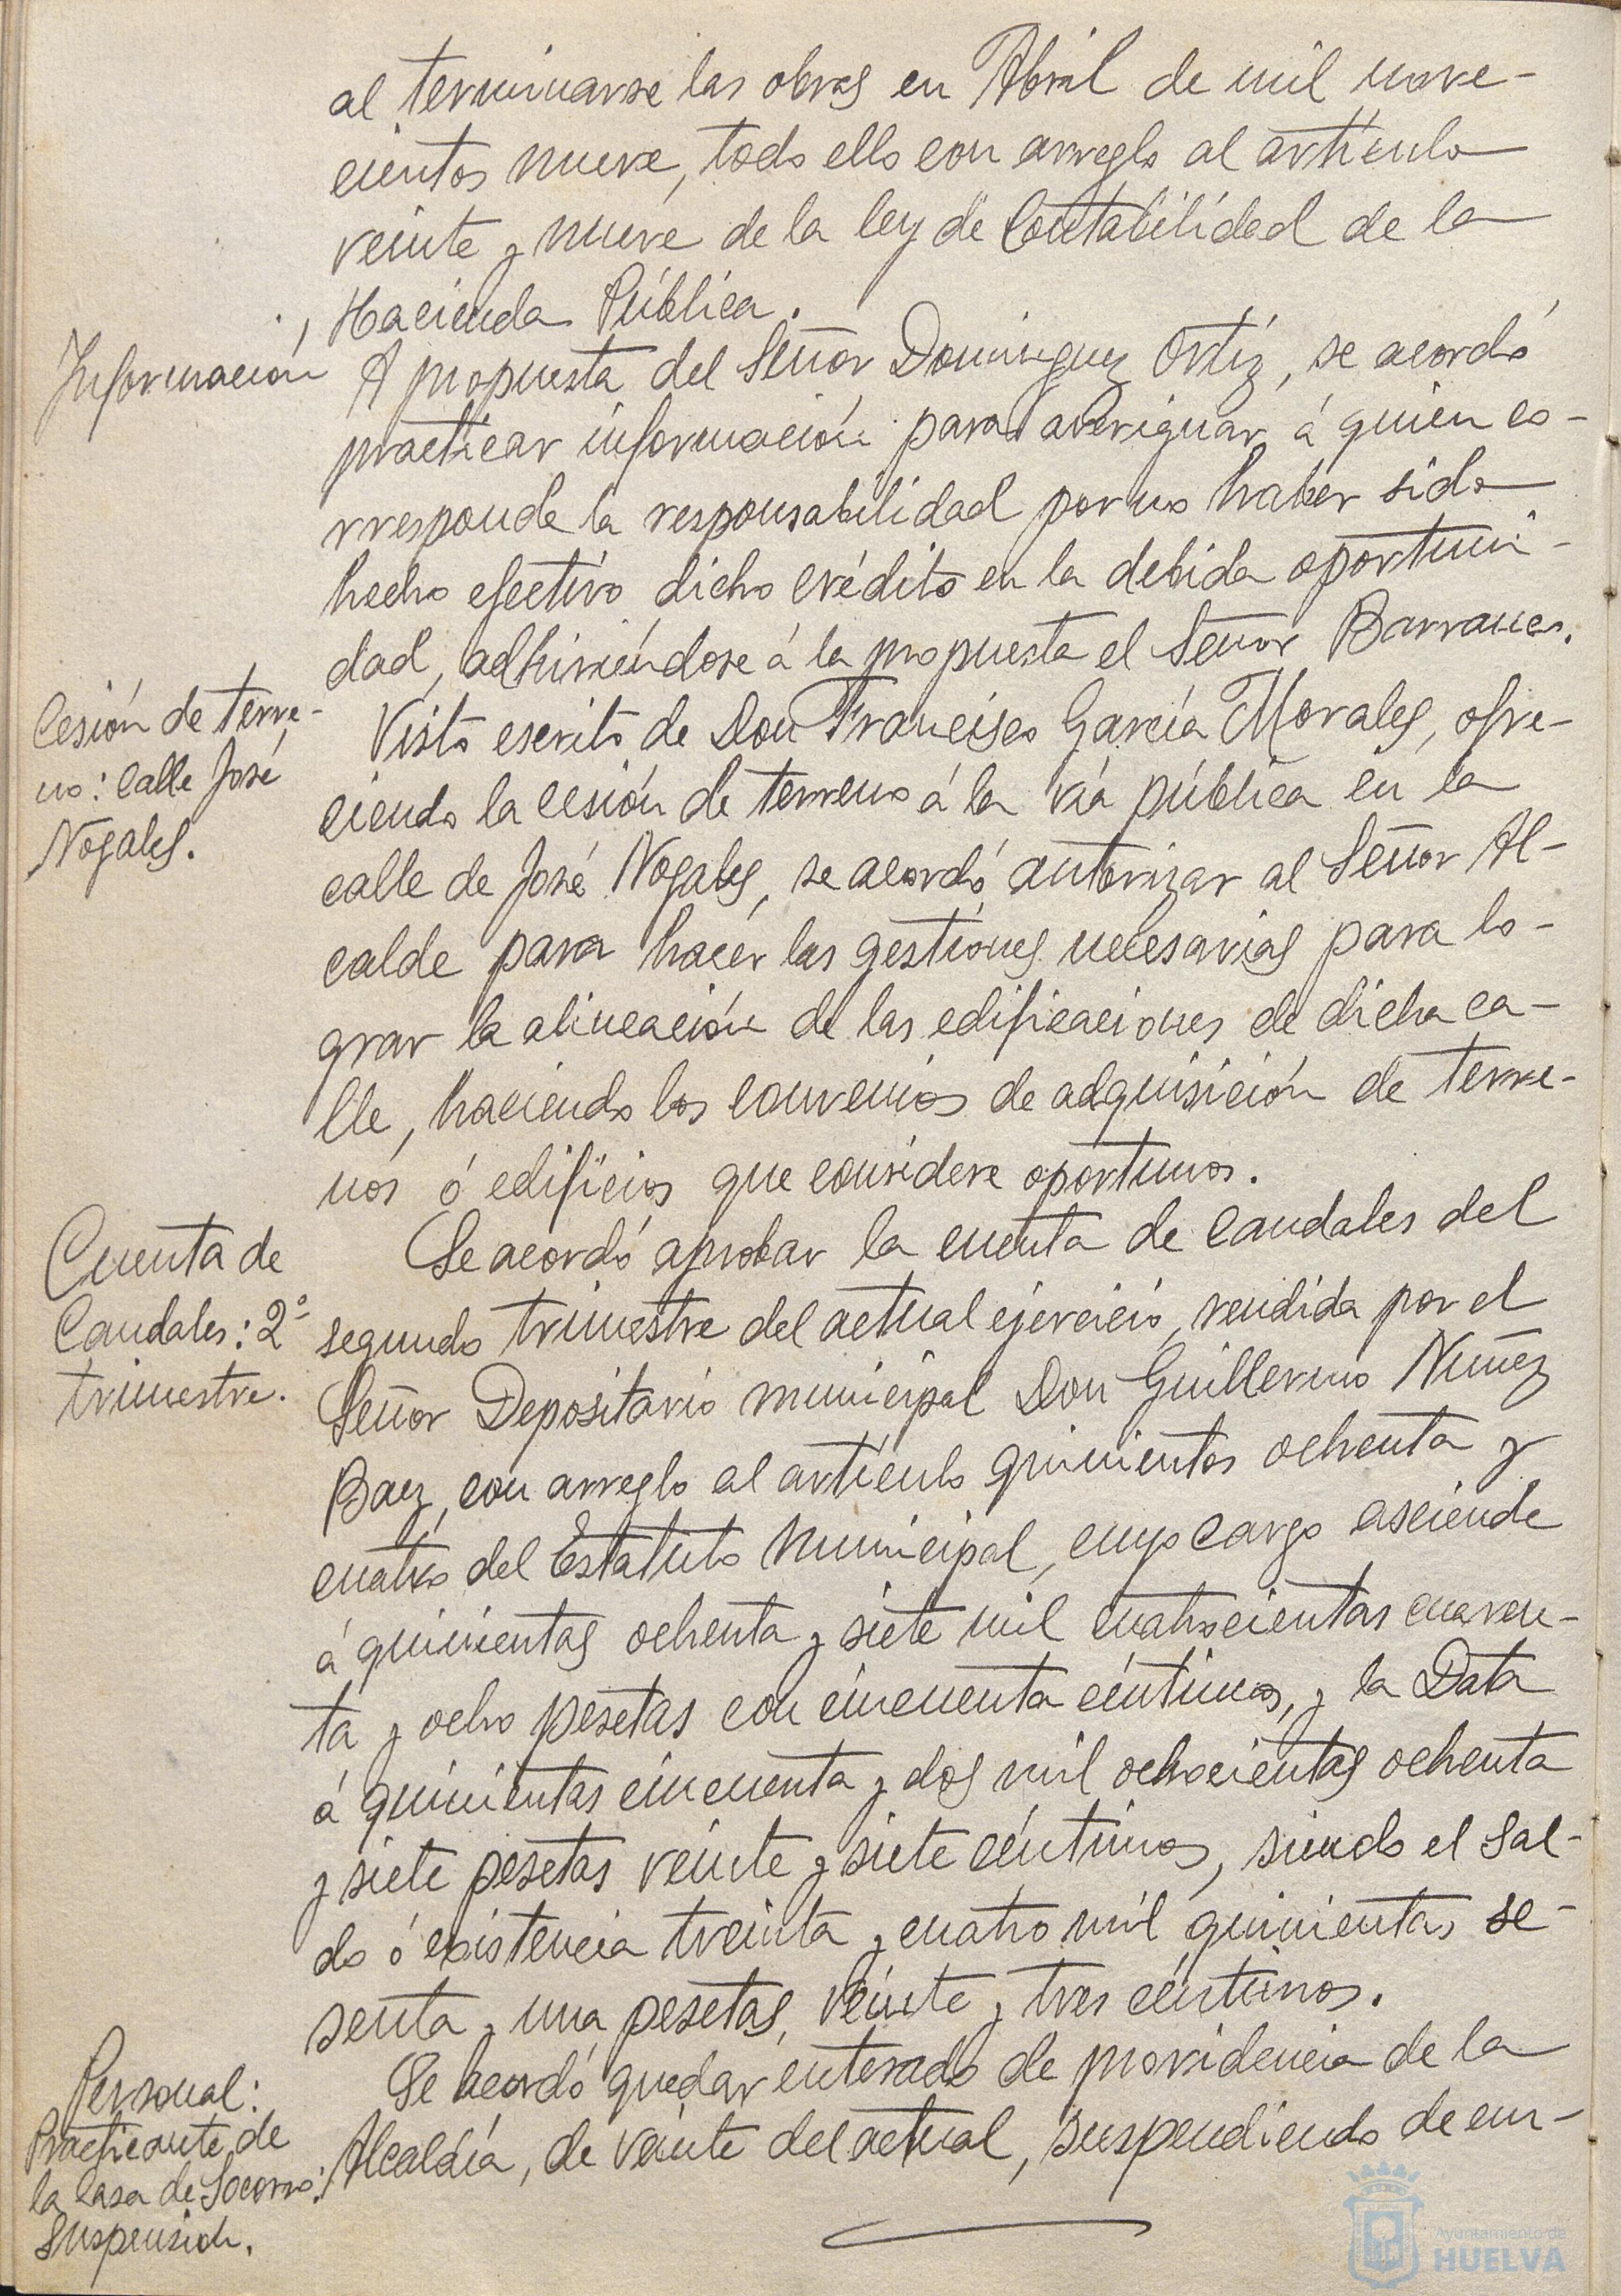 al terminarse las obras en Abril de mil nove-
cientos nueve, todo ello con arreglo al artículo
veinte y nueve de la ley de Contabilidad de la
Hacienda Pública.
Información
A propuesta del Señor Dominguez Ortiz, se acordó
practicar información para averiguar á quien co-
rresponde la responsabilidad por no haber sido
hecho efectivo dicho crédito en la debida oportuni-
dad, adhiriéndose á la propuesta el Señor Barranco.
Cesión de terre-
no: calle José
Nogales.
Visto escrito de Don Francisco García Morales, ofre-
ciendo la cesión de terreno á la vía pública en la
calle de José Nogales, se acordó autorizar al Señor Al-
calde para hacer las gestiones necesarias para lo-
grar la alineación de las edificaciones de dicha ca-
lle, haciendo los convenios de adquisición de terre-
nos ó edificios que considere oportunos.
Cuenta de
Caudales: 2º
trimestre.
Se acordó aprobar la cuenta de caudales del
segundo trimestre del actual ejercicio, rendida por el
Señor Depositario municipal Don Guillermo Nuñez
Baez, con arreglo al artículo quinientos ochenta y
cuatro del Estatuto Municipal, cuyo cargo asciende
á quinientas ochenta y siete mil cuatrocientas cuaren-
ta y ocho pesetas con cincuenta céntimos, y la Data
á quinientas cincuenta y dos mil ochocientas ochenta
y siete pesetas veinte y siete céntimos, siendo el sal-
do ó existencia treinta y cuatro mil quinientas se-
senta y una pesetas, veinte y tres céntimos.
Personal:
Practicante de
la Casa de Socorro:
Suspensión.
Se acordó quedar enterado de providencia de la
Alcaldía, de veinte del actual, suspendiendo de em-
Ayuntamiento de
HUELVA